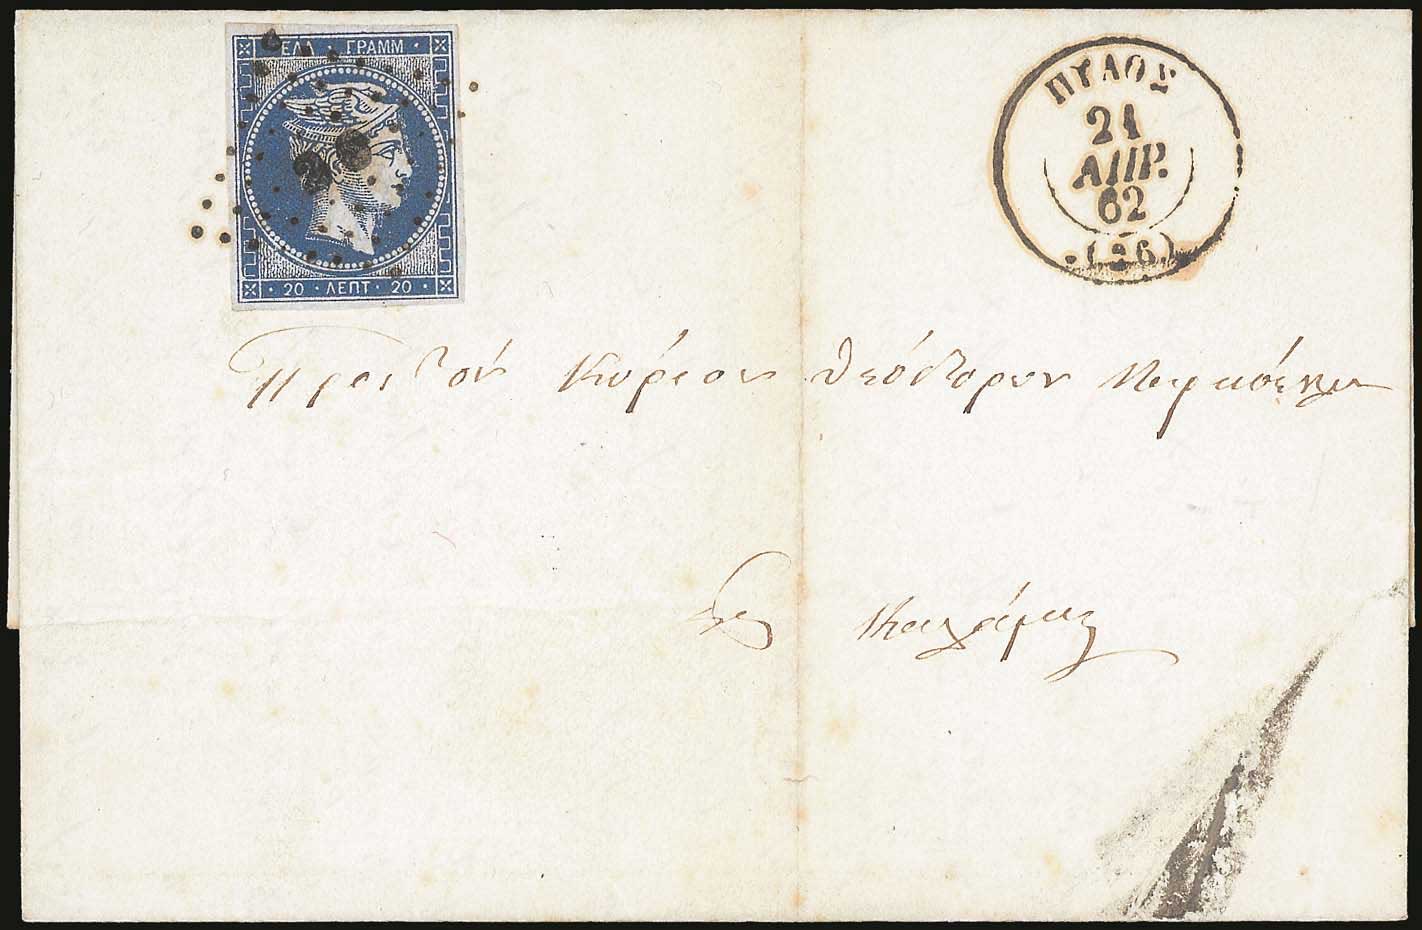 ΕΛΛ · ΓΡΑΜΜ ·
20 · ΛΕΠΤ · 20 ·
ΠΥΛΟΣ
21
ΑΠΡ.
62
Πρὸς Τὸν Κύριον Θεόδωρον
Εἰς Καλάμας